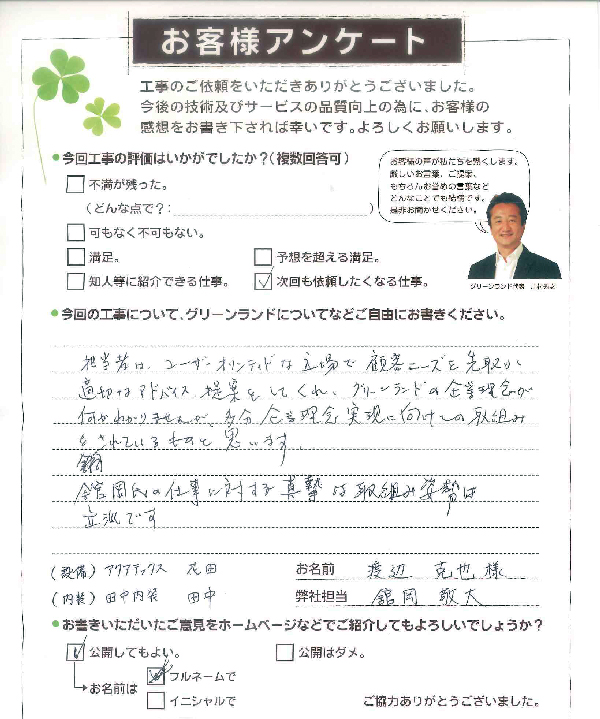 お客様アンケート
工事のご依頼をいただきありがとうございました。
今後の技術及びサービスの品質向上の為に、お客様の
感想をお書き下されば幸いです。よろしくお願いします。
今回工事の評価はいかがでしたか?(複数回答可)
お客様の声が私たちを熱くします。
厳しいお言葉、ご提案、
もちろんお誉めの言葉など
どんなことでも結構です。
是非お聞かせください。
不満が残った。
(どんな点で?:)
可もなく不可もない。
満足。 予想を超える満足。
知人等に紹介できる仕事。 次回も依頼したくなる仕事。
グリーンランド代表
今回の工事について、グリーンランドについてなどご自由にお書きください。
担当者は、ユーザーオリンティドな立場で顧客ニーズを先取り
適切なアドバイス、提案をしてくれ、グリーンランドの企業理念が
何かわかりませんが、多分企業理念実現に向けての取組み
をされているものと思います。
舘岡氏の仕事に対する真摯な取組み姿勢は
立派です
(設備) アクアテックス 花田 お名前 渡辺 克也 様
(内装) 田中内装 田中 弊社担当 舘岡 敬太
お書きいただいたご意見をホームページなどでご紹介してもよろしいでしょうか?
公開してもよい。 公開はダメ。
お名前は フルネームで
イニシャルで ご協力ありがとうございました。